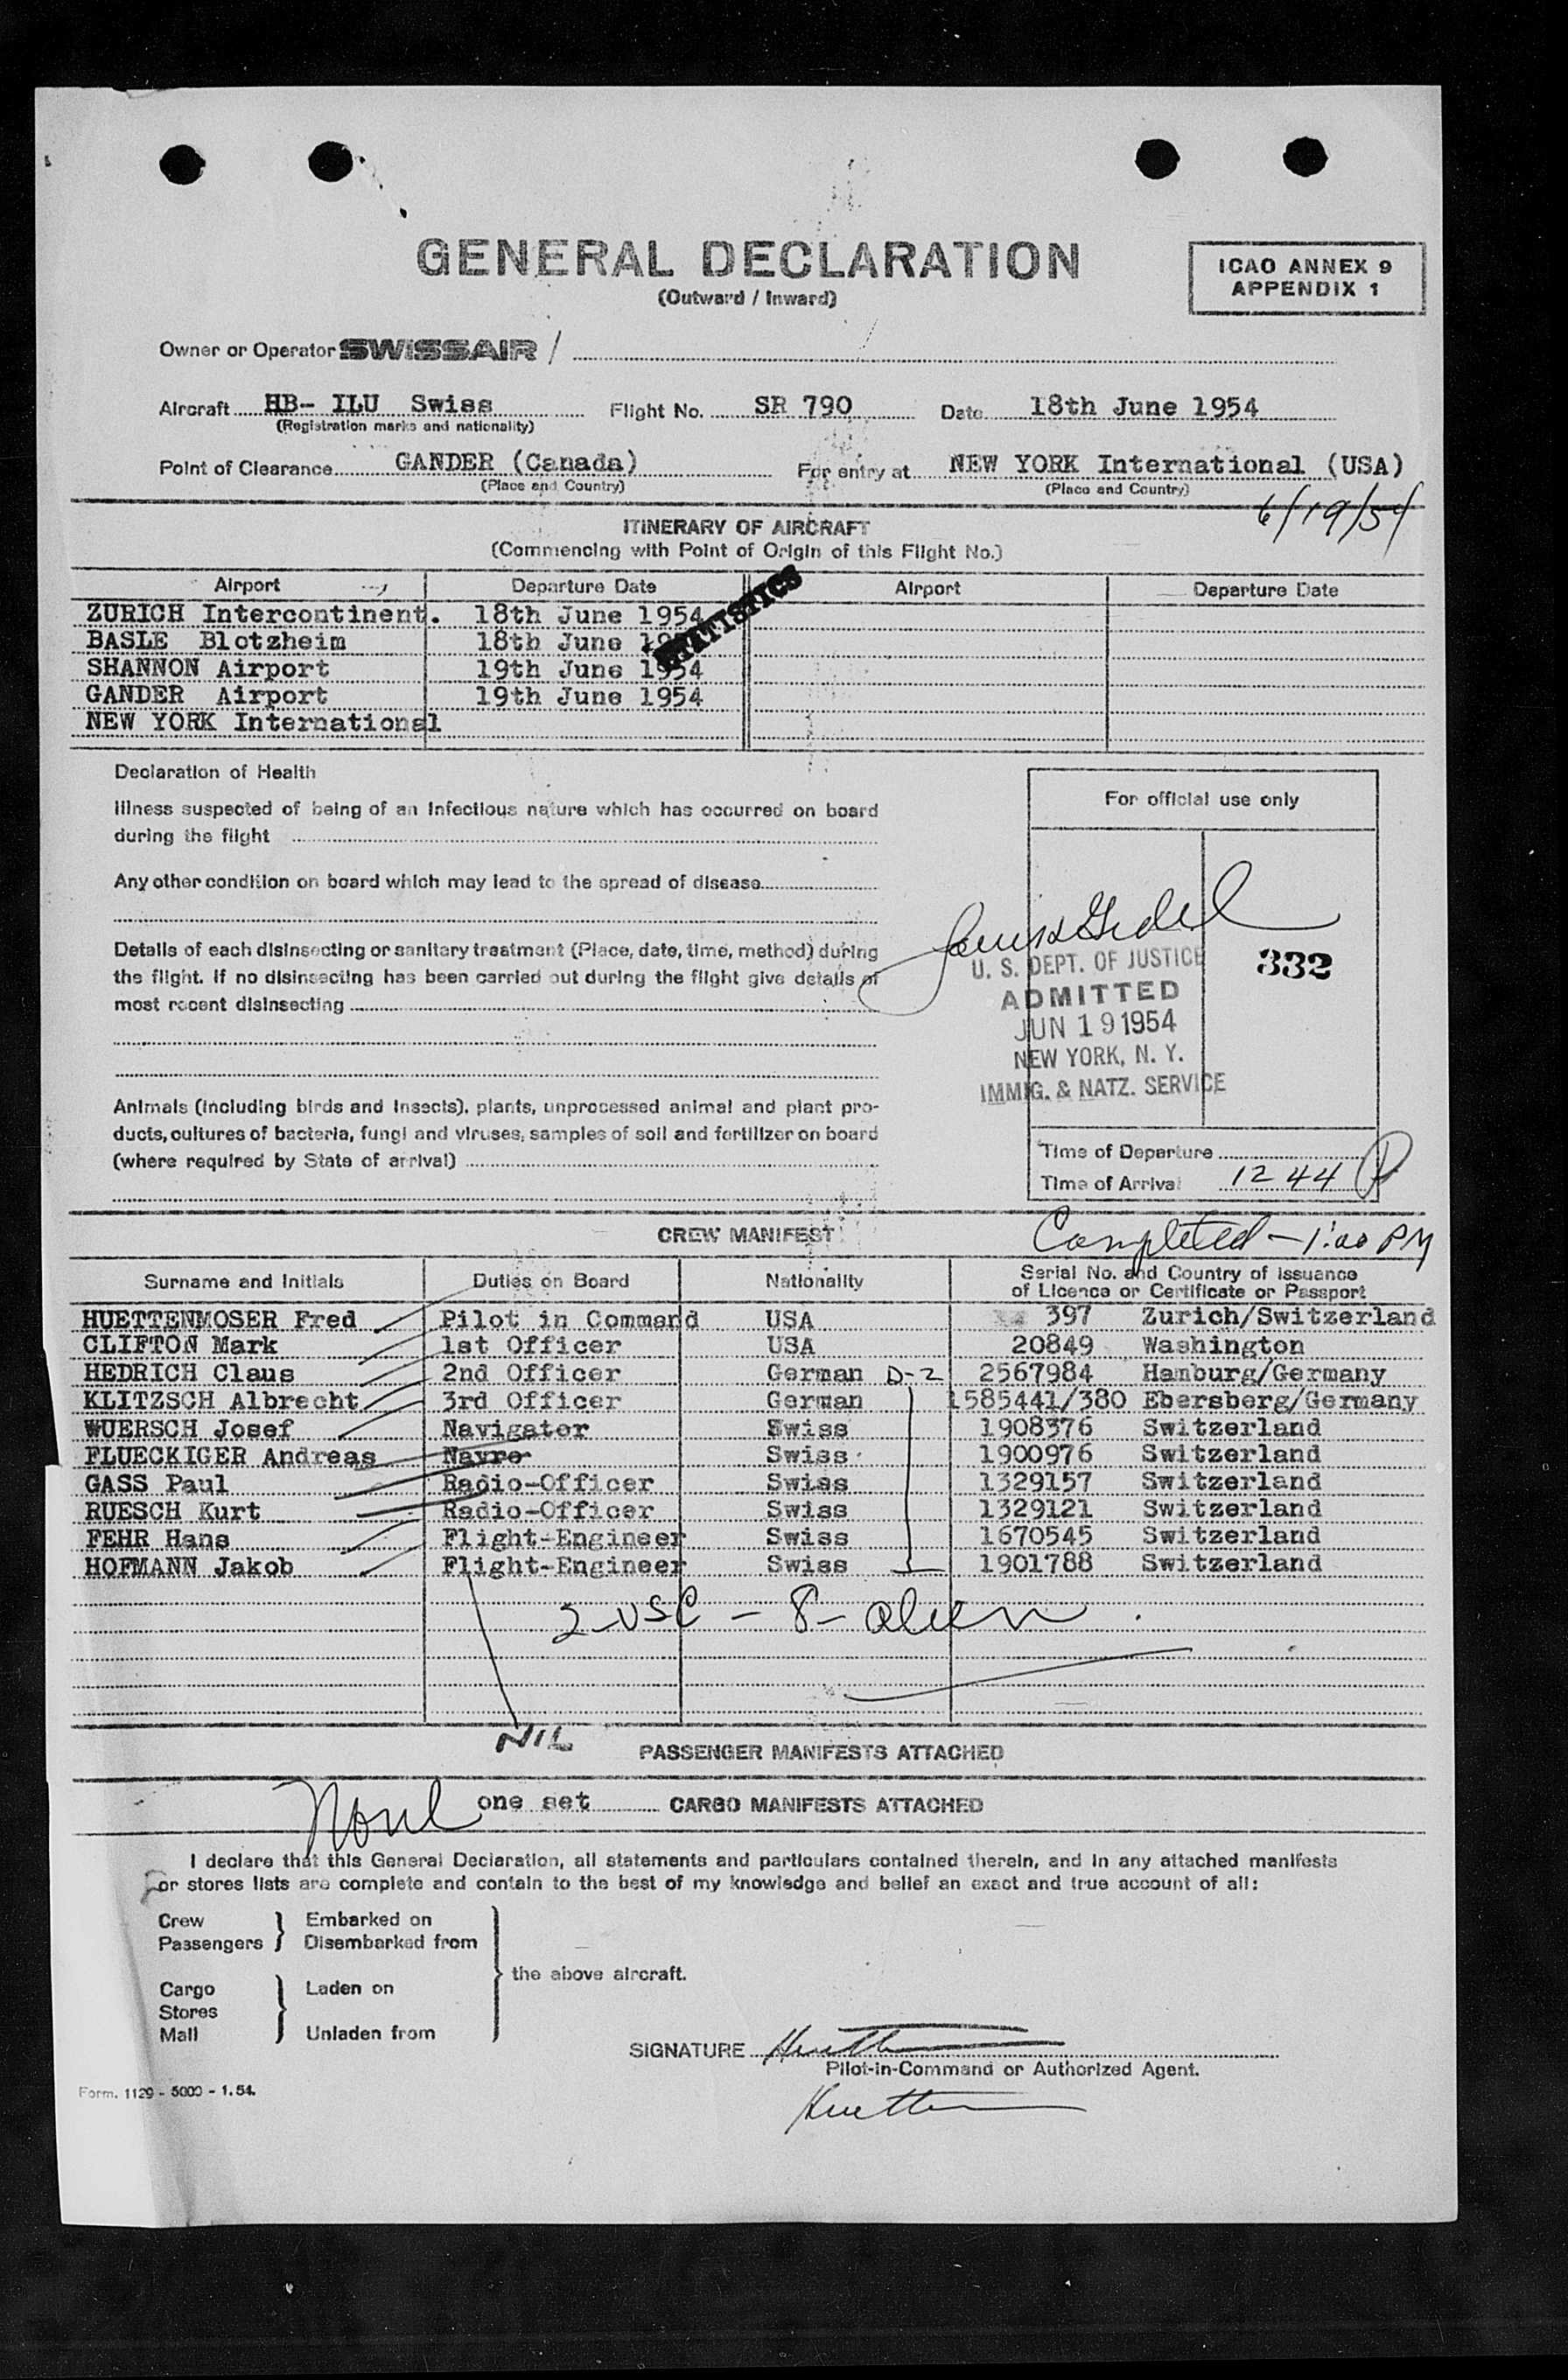 GENERAL DECLARATION
(Outward / Inward)
ICAO ANNEX 9
APPENDIX 1
Owner or Operator SWISSAIR /
Aircraft HB- ILU Swiss Flight No. SR 790 Date 18th June 1954
(Registration marks and nationality)
Point of Clearance GANDER (Canada) For entry at NEW YORK International (USA)
(Place and Country) (Place and Country)
6/19/54
ITINERARY OF AIRCRAFT
(Commencing with Point of Origin of this Flight No.)
Airport Departure Date Airport Departure Date
STATISTICS
ZURICH Intercontinent. 18th June 1954
BASLE Blotzheim 18th June 1954
SHANNON Airport 19th June 1954
GANDER Airport 19th June 1954
NEW YORK International
Declaration of Health
Illness suspected of being of an infectious nature which has occurred on board
during the flight
Any other condition on board which may lead to the spread of disease
Details of each disinsecting or sanitary treatment (Place, date, time, method) during
the flight. If no disinsecting has been carried out during the flight give details of
most recent disinsecting
Animals (including birds and insects), plants, unprocessed animal and plant pro-
ducts, cultures of bacteria, fungi and viruses, samples of soil and fertilizer on board
(where required by State of arrival)
For official use only
U. S. DEPT. OF JUSTICE
ADMITTED
JUN 19 1954
NEW YORK, N. Y.
IMMIG. & NATZ. SERVICE
332
Time of Departure
Time of Arrival 12 44 P
Completed - 1:00 PM
CREW MANIFEST
Surname and Initials Duties on Board Nationality Serial No. and Country of Issuance
of Licence or Certificate or Passport
HUETTENMOSER Fred Pilot in Command USA 397 Zurich/Switzerland
CLIFTON Mark 1st Officer USA 20849 Washington
HEDRICH Claus 2nd Officer German D-2 2567984 Hamburg/Germany
KLITZSCH Albrecht 3rd Officer German 1585441/380 Ebersberg/Germany
WUERSCH Josef Navigator Swiss 1908376 Switzerland
FLUECKIGER Andreas Navro Swiss 1900976 Switzerland
GASS Paul Radio-Officer Swiss 1329157 Switzerland
RUESCH Kurt Radio-Officer Swiss 1329121 Switzerland
FEHR Hans Flight-Engineer Swiss 1670545 Switzerland
HOFMANN Jakob Flight-Engineer Swiss 1901788 Switzerland
2-USC - 8- alien
NIL PASSENGER MANIFESTS ATTACHED
None one set CARGO MANIFESTS ATTACHED
I declare that this General Declaration, all statements and particulars contained therein, and in any attached manifests
or stores lists are complete and contain to the best of my knowledge and belief an exact and true account of all:
Crew Embarked on
Passengers Disembarked from
the above aircraft.
Cargo Laden on
Stores
Mail Unladen from
SIGNATURE
Pilot-in-Command or Authorized Agent.
Form. 1129 - 5000 - 1.54.